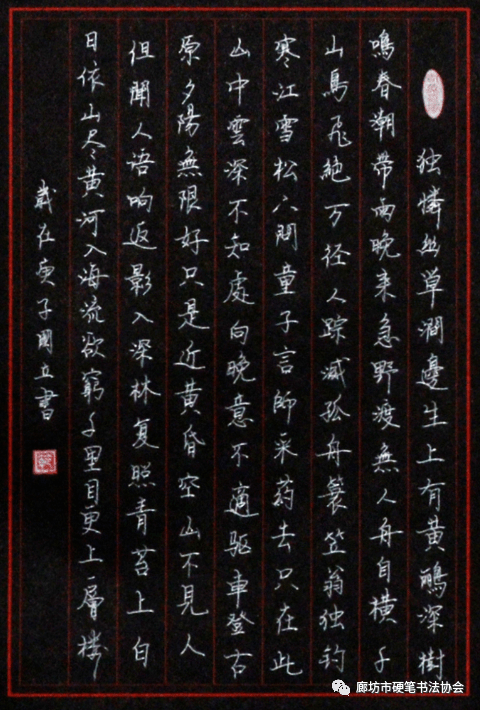 独憐幽草澗邊生上有黄鸝深樹
鳴春潮带雨晚来急野渡無人舟自横千
山鳥飛絶万径人踪滅孤舟蓑笠翁独钓
寒江雪松下問童子言師采药去只在此
山中雲深不知處向晚意不適驱車登古
原夕陽無限好只是近黄昏空山不見人
但聞人语响返影入深林复照青苔上白
日依山尽黄河入海流欲窮千里目更上一層楼
歲在庚子國立書
廊坊市硬笔书法协会